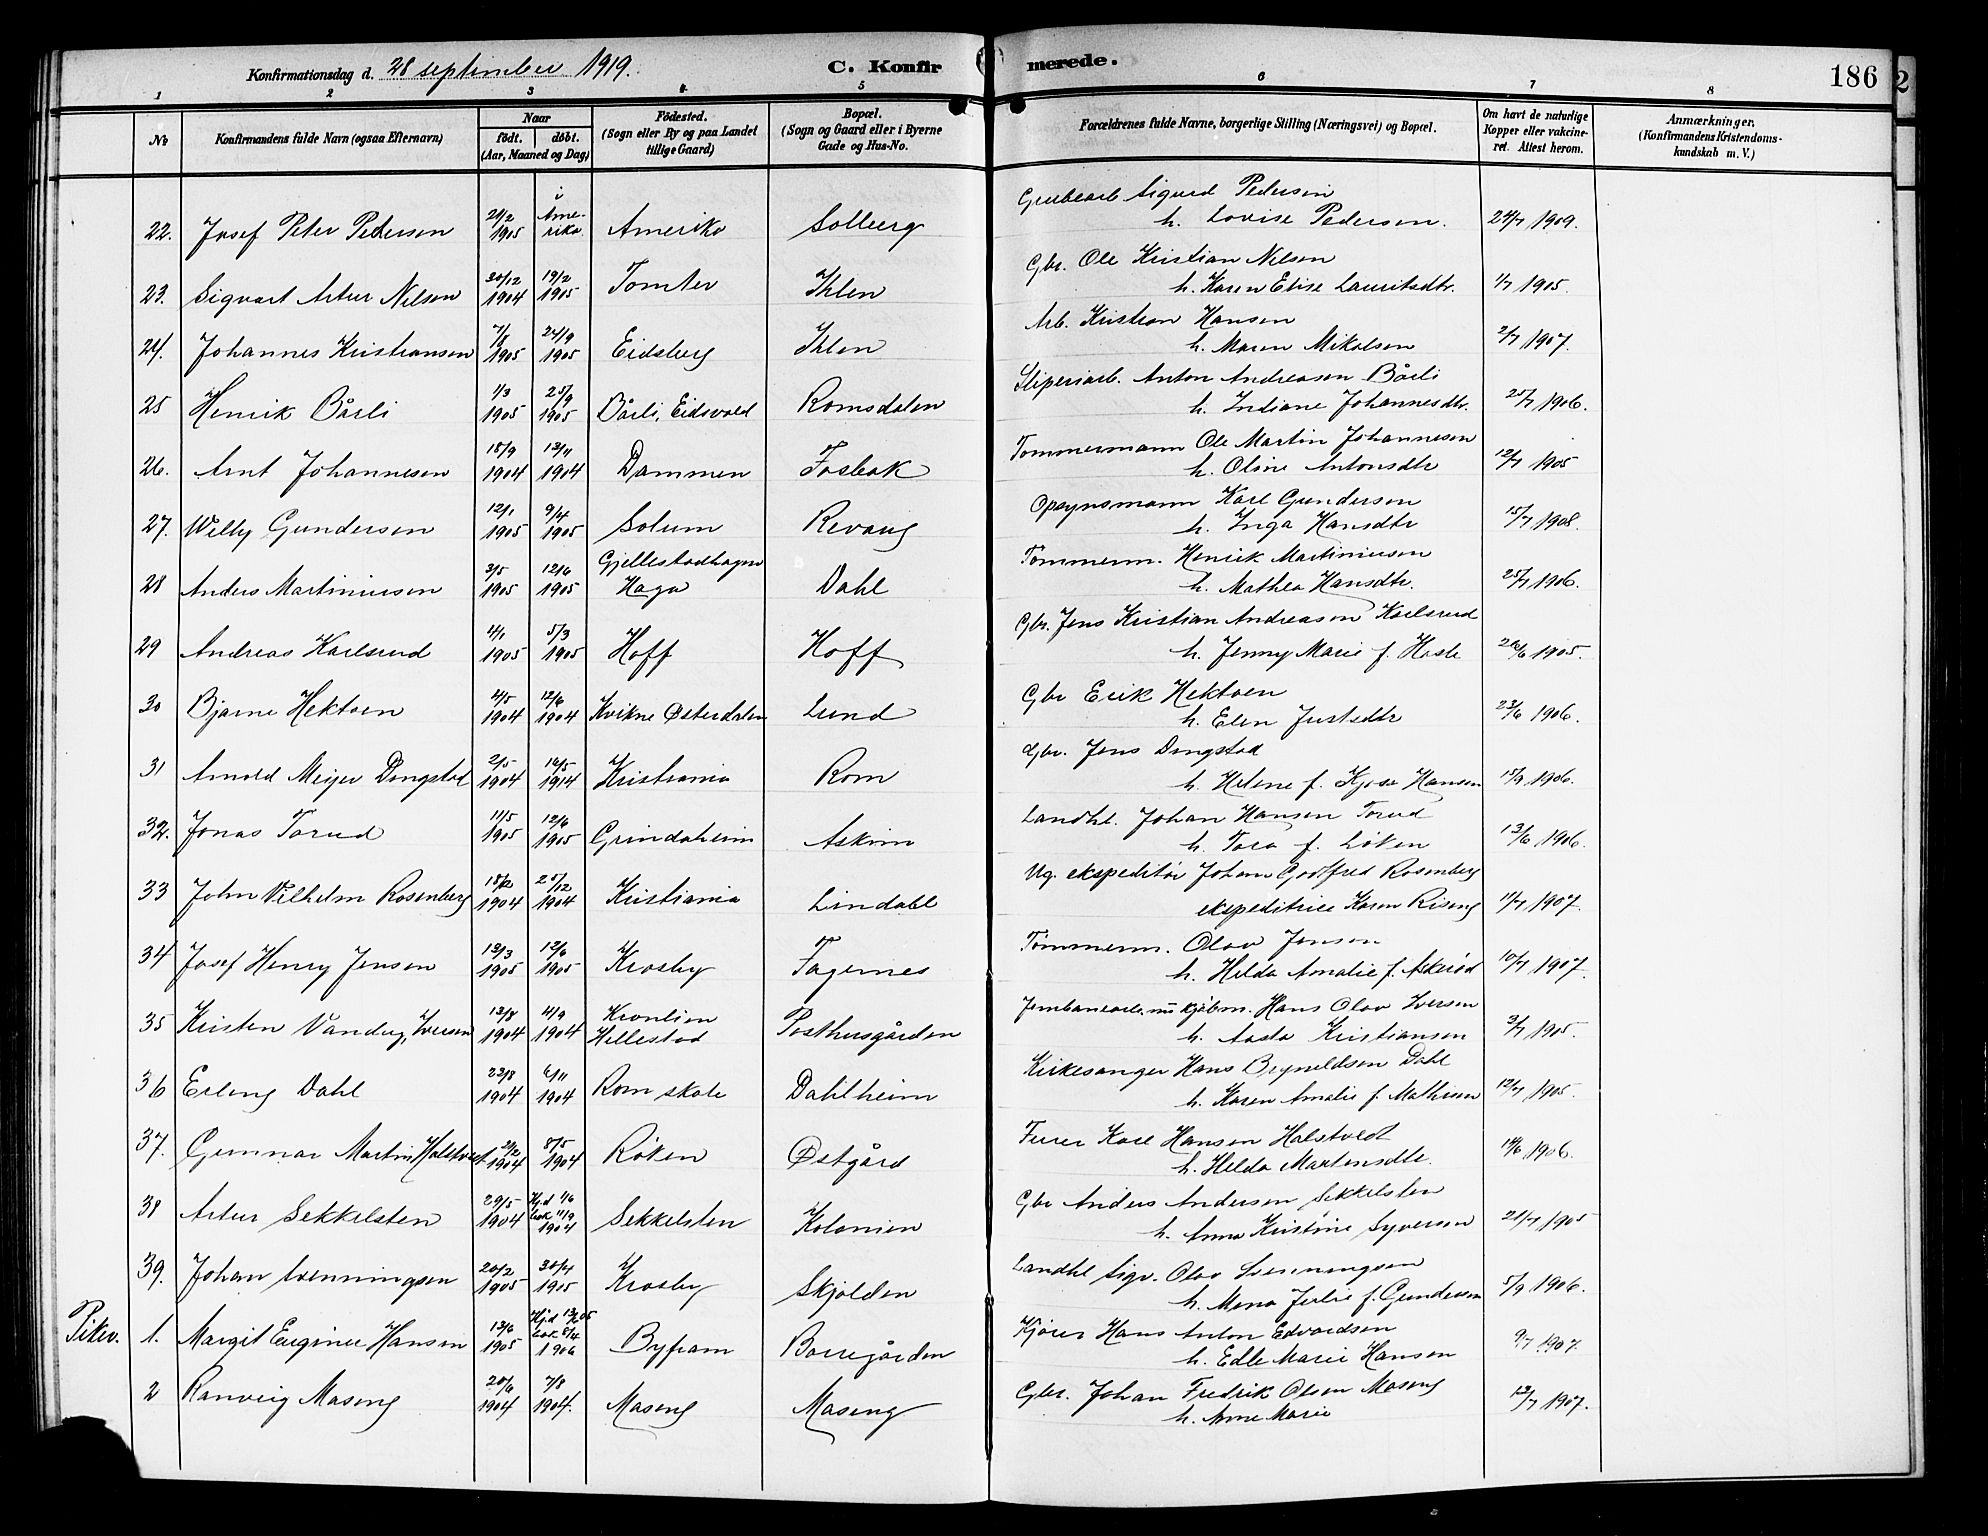 Konfirmationsdag d. 28 september 1919.
C. Konfirmerede.
186
1 2 3 4 5 6 7 8
No
Konfirmandens fulde Navn (ogsaa Efternavn)
Naar
födt. döbt.
(Aar, Maaned og Dag)
Födested.
(Sogn eller By og paa Landet
tillige Gaard)
Bopæl.
(Sogn og Gaard eller i Byerne
Gade og Hus-No.
Forældrenes fulde Navne, borgerlige Stilling (Næringsvei) og Bopæl.
Om havt de naturlige
Kopper eller vakcine-
ret. Attest herom.
Anmærkninger.
(Konfirmandens Kristendoms-
kundskab m. V.)
22. Josef Peter Pedersen 21/2 1905 i Amerika Amerika Solberg Grubearb. Sigurd Pedersen
h. Lovise Pedersen. 24/7 1909.
23. Sigvart Artur Nelsen 30/12 1904 19/2 1905 Tomter Ihlen Gbr. Ole Kristian Nelsen
h. Karen Elise Lauritsdtr. 1/7 1905.
24. Johannes Kristiansen 7/8 1905 24/9 1905 Eidsberg Ihlen Arb. Kristian Hansen
h. Maren Mikalsen 2/7 1907.
25 Henrik Bårli 1/3 1905 25/9 1905 Bårli, Eidsvold Romsdalen Sliperiarb. Anton Andreasen Bårli
h. Indiane Johannesdtr. 25/7 1906.
26. Arnt Johannesen 18/9 1904 13/11 1904 Dammen Fosbak Tømmermann Ole Martin Johannesen
h. Oline Antonsdtr 12/7 1905
27. Willy Gundersen 12/1 1905 9/4 1905 Solum Revaug Opsynsmann Karl Gundersen
h. Inga Hansdtr 15/7 1908.
28 Anders Martiniusen 3/5 1905 12/6 1905 Gjellestadhagen
Haga Dahl Tømmerm. Henrik Martiniusen
h. Mathea Hansdtr. 25/7 1906.
29 Andreas Karlsrud 4/1 1905 5/3 1905 Hoff Hoff Gbr. Jens Kristian Andreasen Karlsrud
h. Jenny Marie f. Hasle 20/6 1905.
30 Bjarne Hektoen 4/5 1904 12/6 1904 Kvikne Østerdalen Lund Gbr Erik Hektoen
h. Elen Justsdtr 23/6 1906.
31 Arnold Meijer Dingstad 2/5 1904 16/5 1914 Kristiania Rom Gbr. Jens Dingstad
h. Helene f. Kjose Hansen 15/9 1906.
32. Jonas Torud 11/5 1905 12/6 1905 Grindaheim Askim Landhl. Johan Hansen Torud
h. Tora f. Løken 13/6 1906.
33 John Vilhelm Rosenberg 18/2 1904 25/12 1904 Kristiania Lindahl Ug. ekspeditør Johan Godtfred Rosenberg
ekspeditrice Karen Riseng 11/7 1907.
34 Josef Henry Jensen 13/3 1905 12/6 1905 Krosby Fagernes Tømmerm. Olav Jensen
h. Hilda Amalie f. Askerød 10/7 1907.
35 Kristen Iversen 13/8 1904 4/9 1904 Kronlien
Hellestad Posthusgården Jernbanearb. nu kjøbm. Hans Olav Iversen
h. Aasta Kristiansen 3/7 1905.
36 Erling Dahl 23/8 1904 6/11 1904 Rom skole Dahlheim Kirkesanger Hans Brynildsen Dahl
h. Karen Amalie f. Mathisen 12/7 1905.
37. Gunnar Martin Halstvedt 29/2 1904 8/5 1904 Røken Østgård Furer Karl Hansen Halstvedt
h. Hilda Martensdtr. 14/6 1906.
38 Artur Sekkelsten 29/5 1904 Hj.d 1/6
bek 11/9
1904 Sekkelsten Kolonien Gbr Anders Andersen Sekkelsten
h. Anna Kristine Syversen 21/7 1905
39. Johan Svenningsen 20/2 1905 30/4 1905 Krosby Skjolden Landhl Sigv. Olav Svenningsen
h. Mena Julie f. Gundersen 5/9 1906.
Piker.
1. Margit Euginie Hansen 13/6 1905 Hj.d 13/6 05
bek. 8/4
1906 Byfram Borregården Kjører Hans Anton Edvardsen
h. Edle Marie Hansen 9/7 1907.
2 Ranveig Maseng 20/6 1904 7/8 1904. Maseng Maseng Gbr. Johan Fredrik Olsen Maseng
h. Anne Marie 13/7 1907.